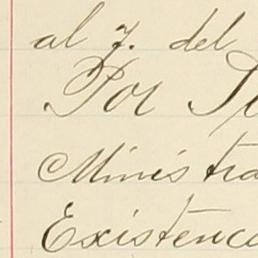 al 7. del
Por S
Ministra
Existenc